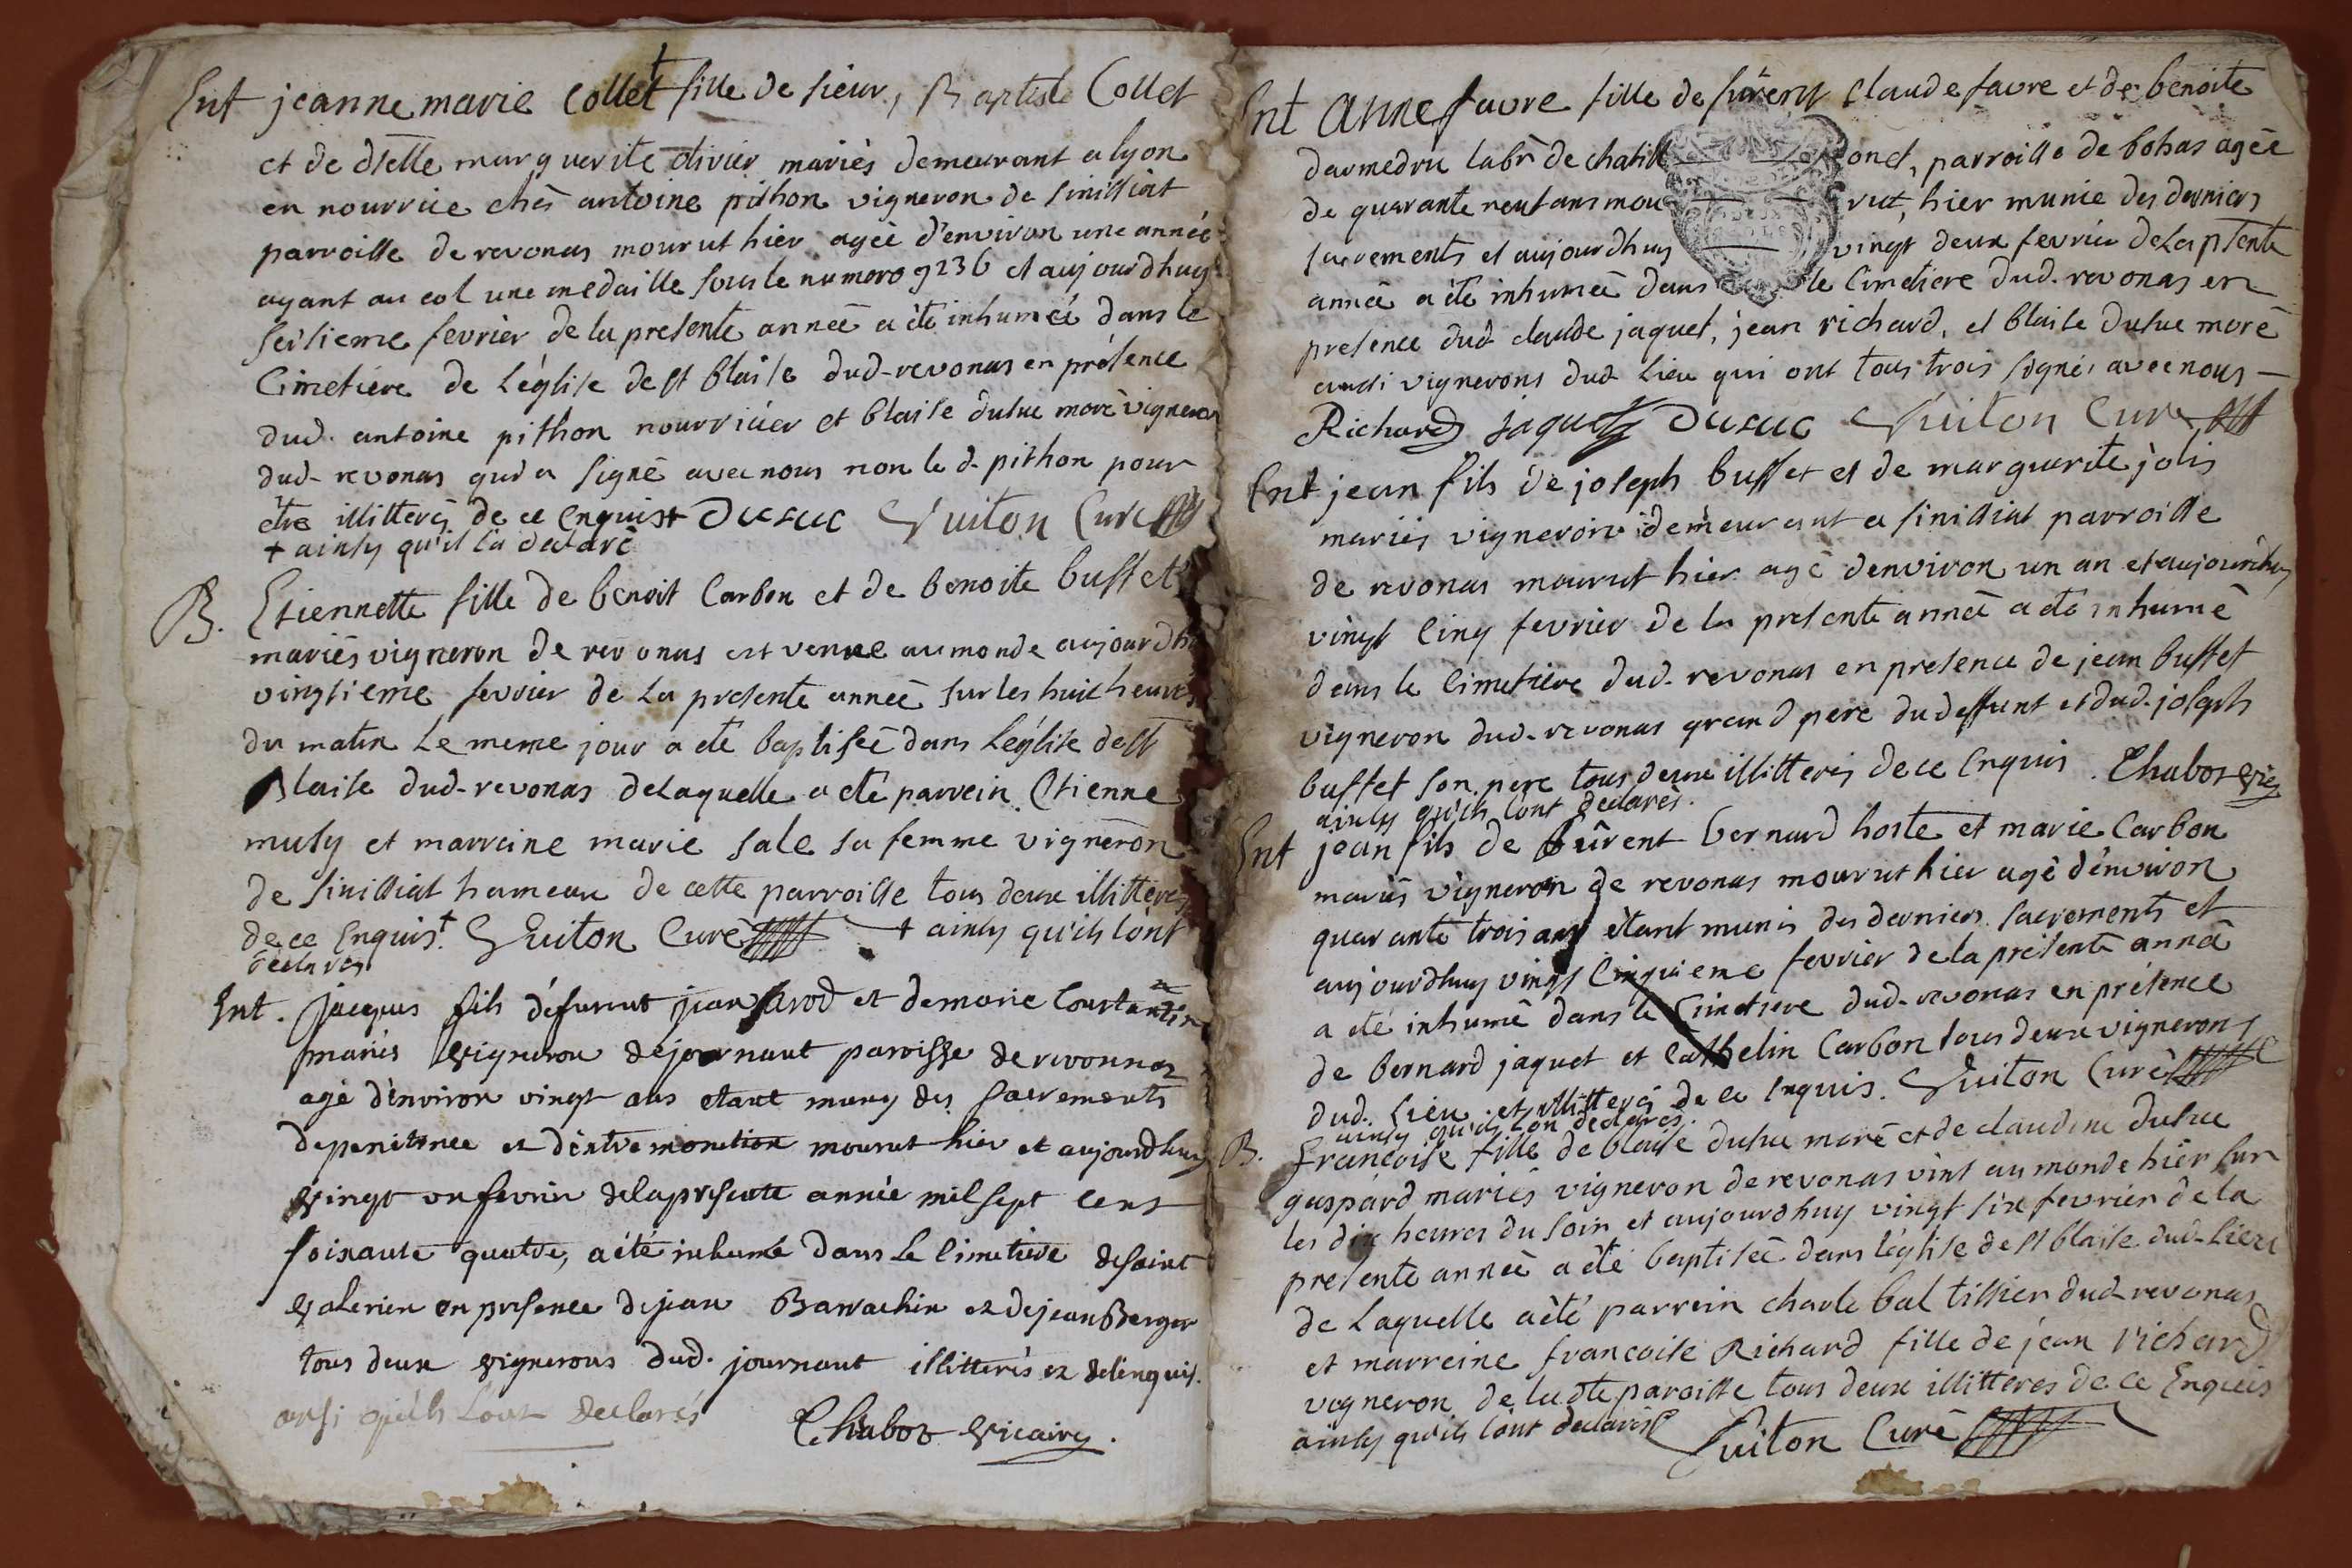 Ent jeanne marie Collet fille de sieur, Baptiste Collet
et de dlle marguerite divier mariés demeurant a lyon
en nourrice chès antoine pithon vigneron de sinissiat
parroisse de revonas mourut hier agée d'environ une année
ayant au col une medaille sous le numero 9236 et aujourdhuy
seisieme fevrier de la presente année a été inhumée dans le
Cimetiere de L'église de st blaise dud. revonas en présence
dud. antoine pithon nourricier et blaise dusuc moré vigneron
dud. revonas qui a signé avec nous non le d. pithon pour
être illitteré de ce Enquis + Dusuc Guiton Curé
+ ainsy qu'il l'a declaré
B. Etiennette fille de benoit Carbon et de benoite buffet
mariés vigneron de revonas est venue au monde aujourdhu
vingtieme fevrier de La presente année sur les huit heures
du matin Le meme jour a eté baptisée dans L'église de st
Blaise dud. revonas de Laquelle a eté parrein Etienne
musy et marreine marie sale sa femme vigneron
de sinissiat hameau de cette parroisse tous deux illitteres
de ce Enquis + Guiton Curé + ainsy qu'ils l'ont
declarés
Ent. Jacques fils défunt jean Arod et de marie Constantin
mariés vigneron de journant paroisse de revonnas
agé d'environ vingt ans etant muny des Sacrements
de penitence et d'extreme onction mourut hier et aujourdhuy
vingt un fevrier de la presente année mil sept cens
soixante quatre, a été inhumé dans Le Cimetiere de saint
Valerien en presence de jean Barrachin et de jean Berger
tous deux vignerons dud. journant illitterés et de l'enquis.
ansi qu'ils l'ont declarés Chabot Vicaire.
Ent Anne favre fille de furent Claude favre et de benoite
darmedru labr de chatill onet, parroisse de bohas agée
de quarante neuf ans mou rut, hier munie des derniers
sacrements et aujourdhuy vingt deux fevrier de La psente
année a été inhumée dans le Cimetiere dud. revonas en
presence dud. claude jaquet, jean richard, et blaise dusuc moré
aussi vignerons dud. Lieu qui ont tous trois signés avec nous
Richard jaquet Dusuc Guiton Curé
Ent jean fils de joseph buffet et de marguerite jolis
mariés vigneron demeurant a sinissiat parroisse
de revonas mourut hier agé denviron un an et aujourdhuy
vingt Cinq fevrier de la presente année a été inhumé
dans le Cimetiere dud. revonas en presence de jean buffet
vigneron dud. revonas grand pere du deffunt et dud. joseph
buffet son pere tous deux illitterés de ce Enquis. Chabot Vic
ainsy qu'ils l'ont declarés.
Ent jean fils de furent bernard hoste et marie Carbon
mariés vigneron de revonas mourut hier agé d'environ
quarante trois ans étant munis des derniers sacrements et
aujourdhuy vingt Cinquieme fevrier de la présente année
a eté inhumé dans le Cimetiere dud. revonas en présence
de bernard jaquet et Cathelin Carbon tous deux vignerons
dud. Lieu et illitterés de ce Enquis. Guiton Curé
ainsy qu'ils l'on declarés.
B. Francoise fille de blaise dusuc moré et de claudine dusuc
gaspard mariés vigneron de revonas vint au monde hier sur
les dix heures du soir et aujourdhuy vingt six fevrier de la
presente année a été baptisée dans l'église de st blaise dud. Lieu
de Laquelle a été parrein charle bal tissier dud. revonas
et marreine francoise Richard fille de jean richard
vigneron de ladte paroisse tous deux illitteres de ce Enquis
ainsy qu'ils l'ont declarés Guiton Curé